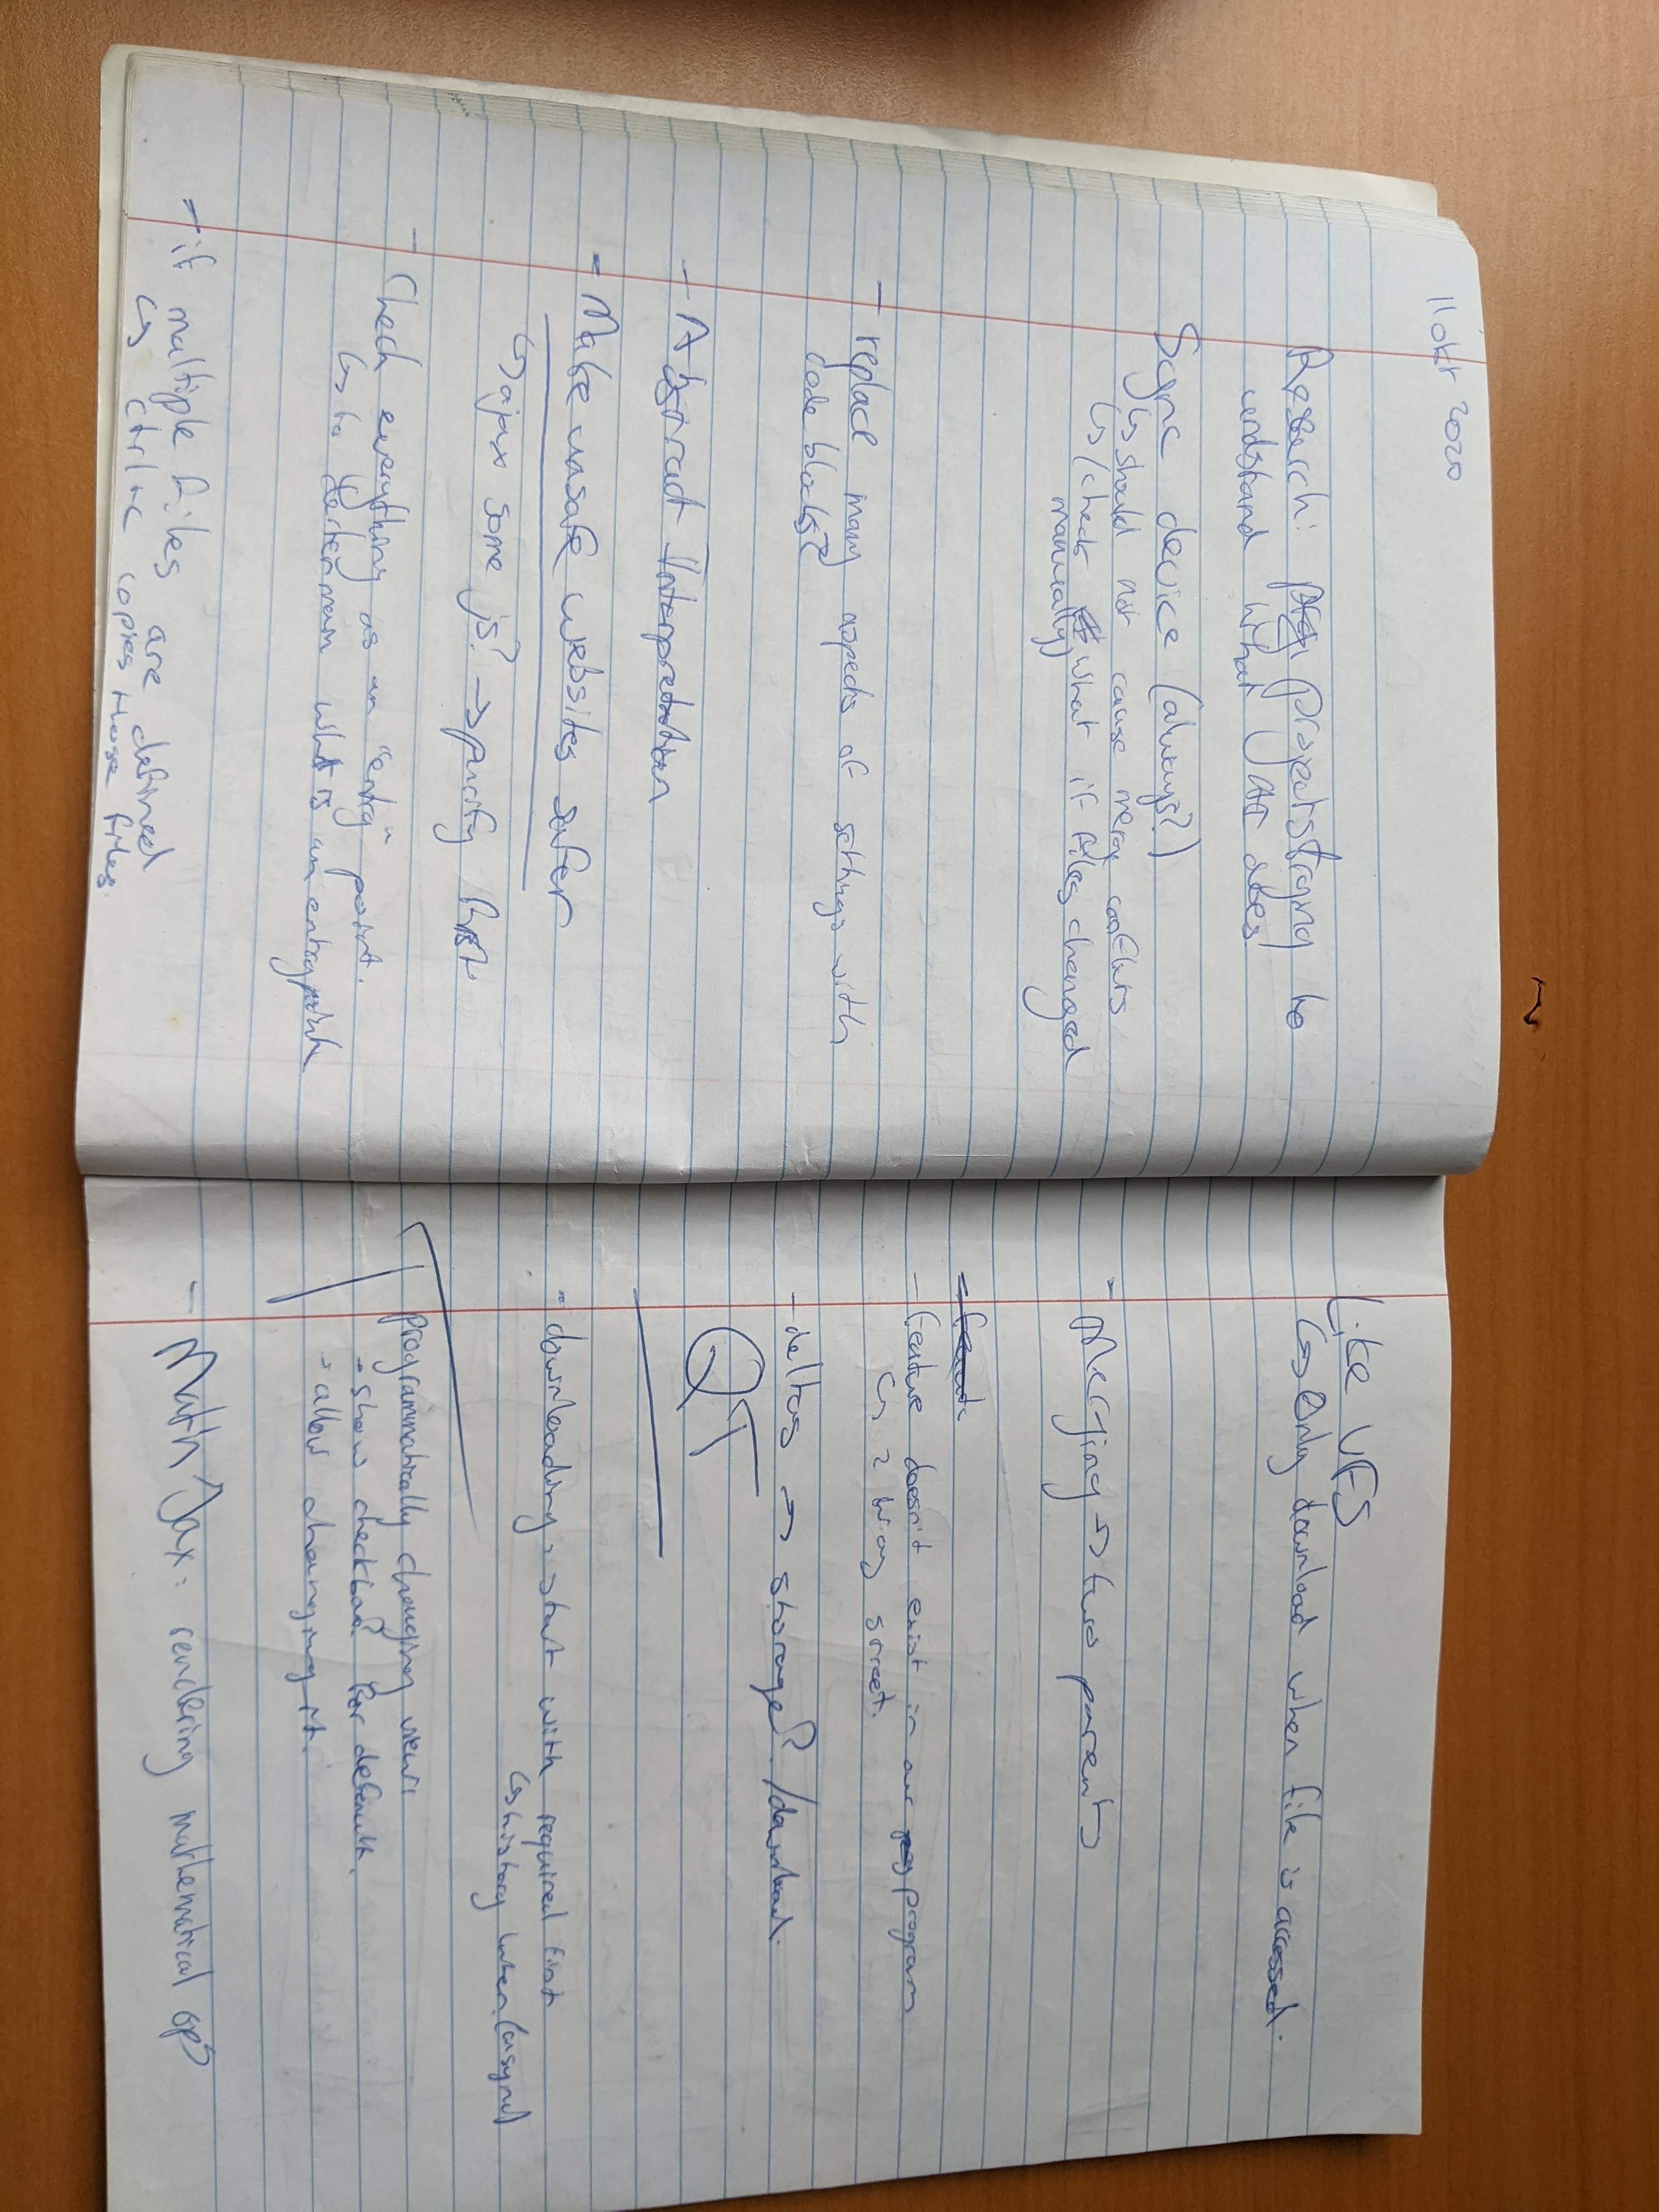 11 okt 2020
Research: projectstraning to
undstand what does
Sync device (always?)
↳ should not cause merg conflicts
↳ (check what if files changed
manually)
- replace many aspects of settings with
code blocks?
- Abstract Interpretation
- Make unsafe websites safer
↳ ajax some js? → purify first.
- Check everything as an "entry" point.
↳ to determean what is an entrypoint
- if multiple files are defined
↳ ctrl+c copies those files.
Like VFS
↳ Only download when file is accessed.
- Merging → two parents
- feature doesn't exist in our program
↳ 2 way street.
- deltas → storage? / download.
QT
- downloading → start with required first
↳ history later (async)
programmatically changing view:
- show checkbox for default.
- allow changing it.
- MathJax: rendering mathematical ops